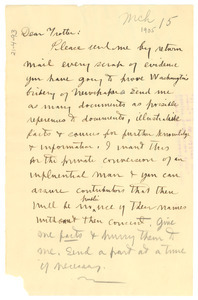 Mch 15
1905
Dear Trotter:
Please send me by return
mail every scrap of evidence
you have going to prove Washington's
bribery of Newspapers. Send me
as many documents as possible
references to documents, illustrative
facts & sources for further knowledge
& information. I want this
for the private conversion of an
influential man & you can
assure contributors that there
will be no public use of their names
without their consent. Give
me facts & hurry them to
me. Send a part at a time
if necessary.